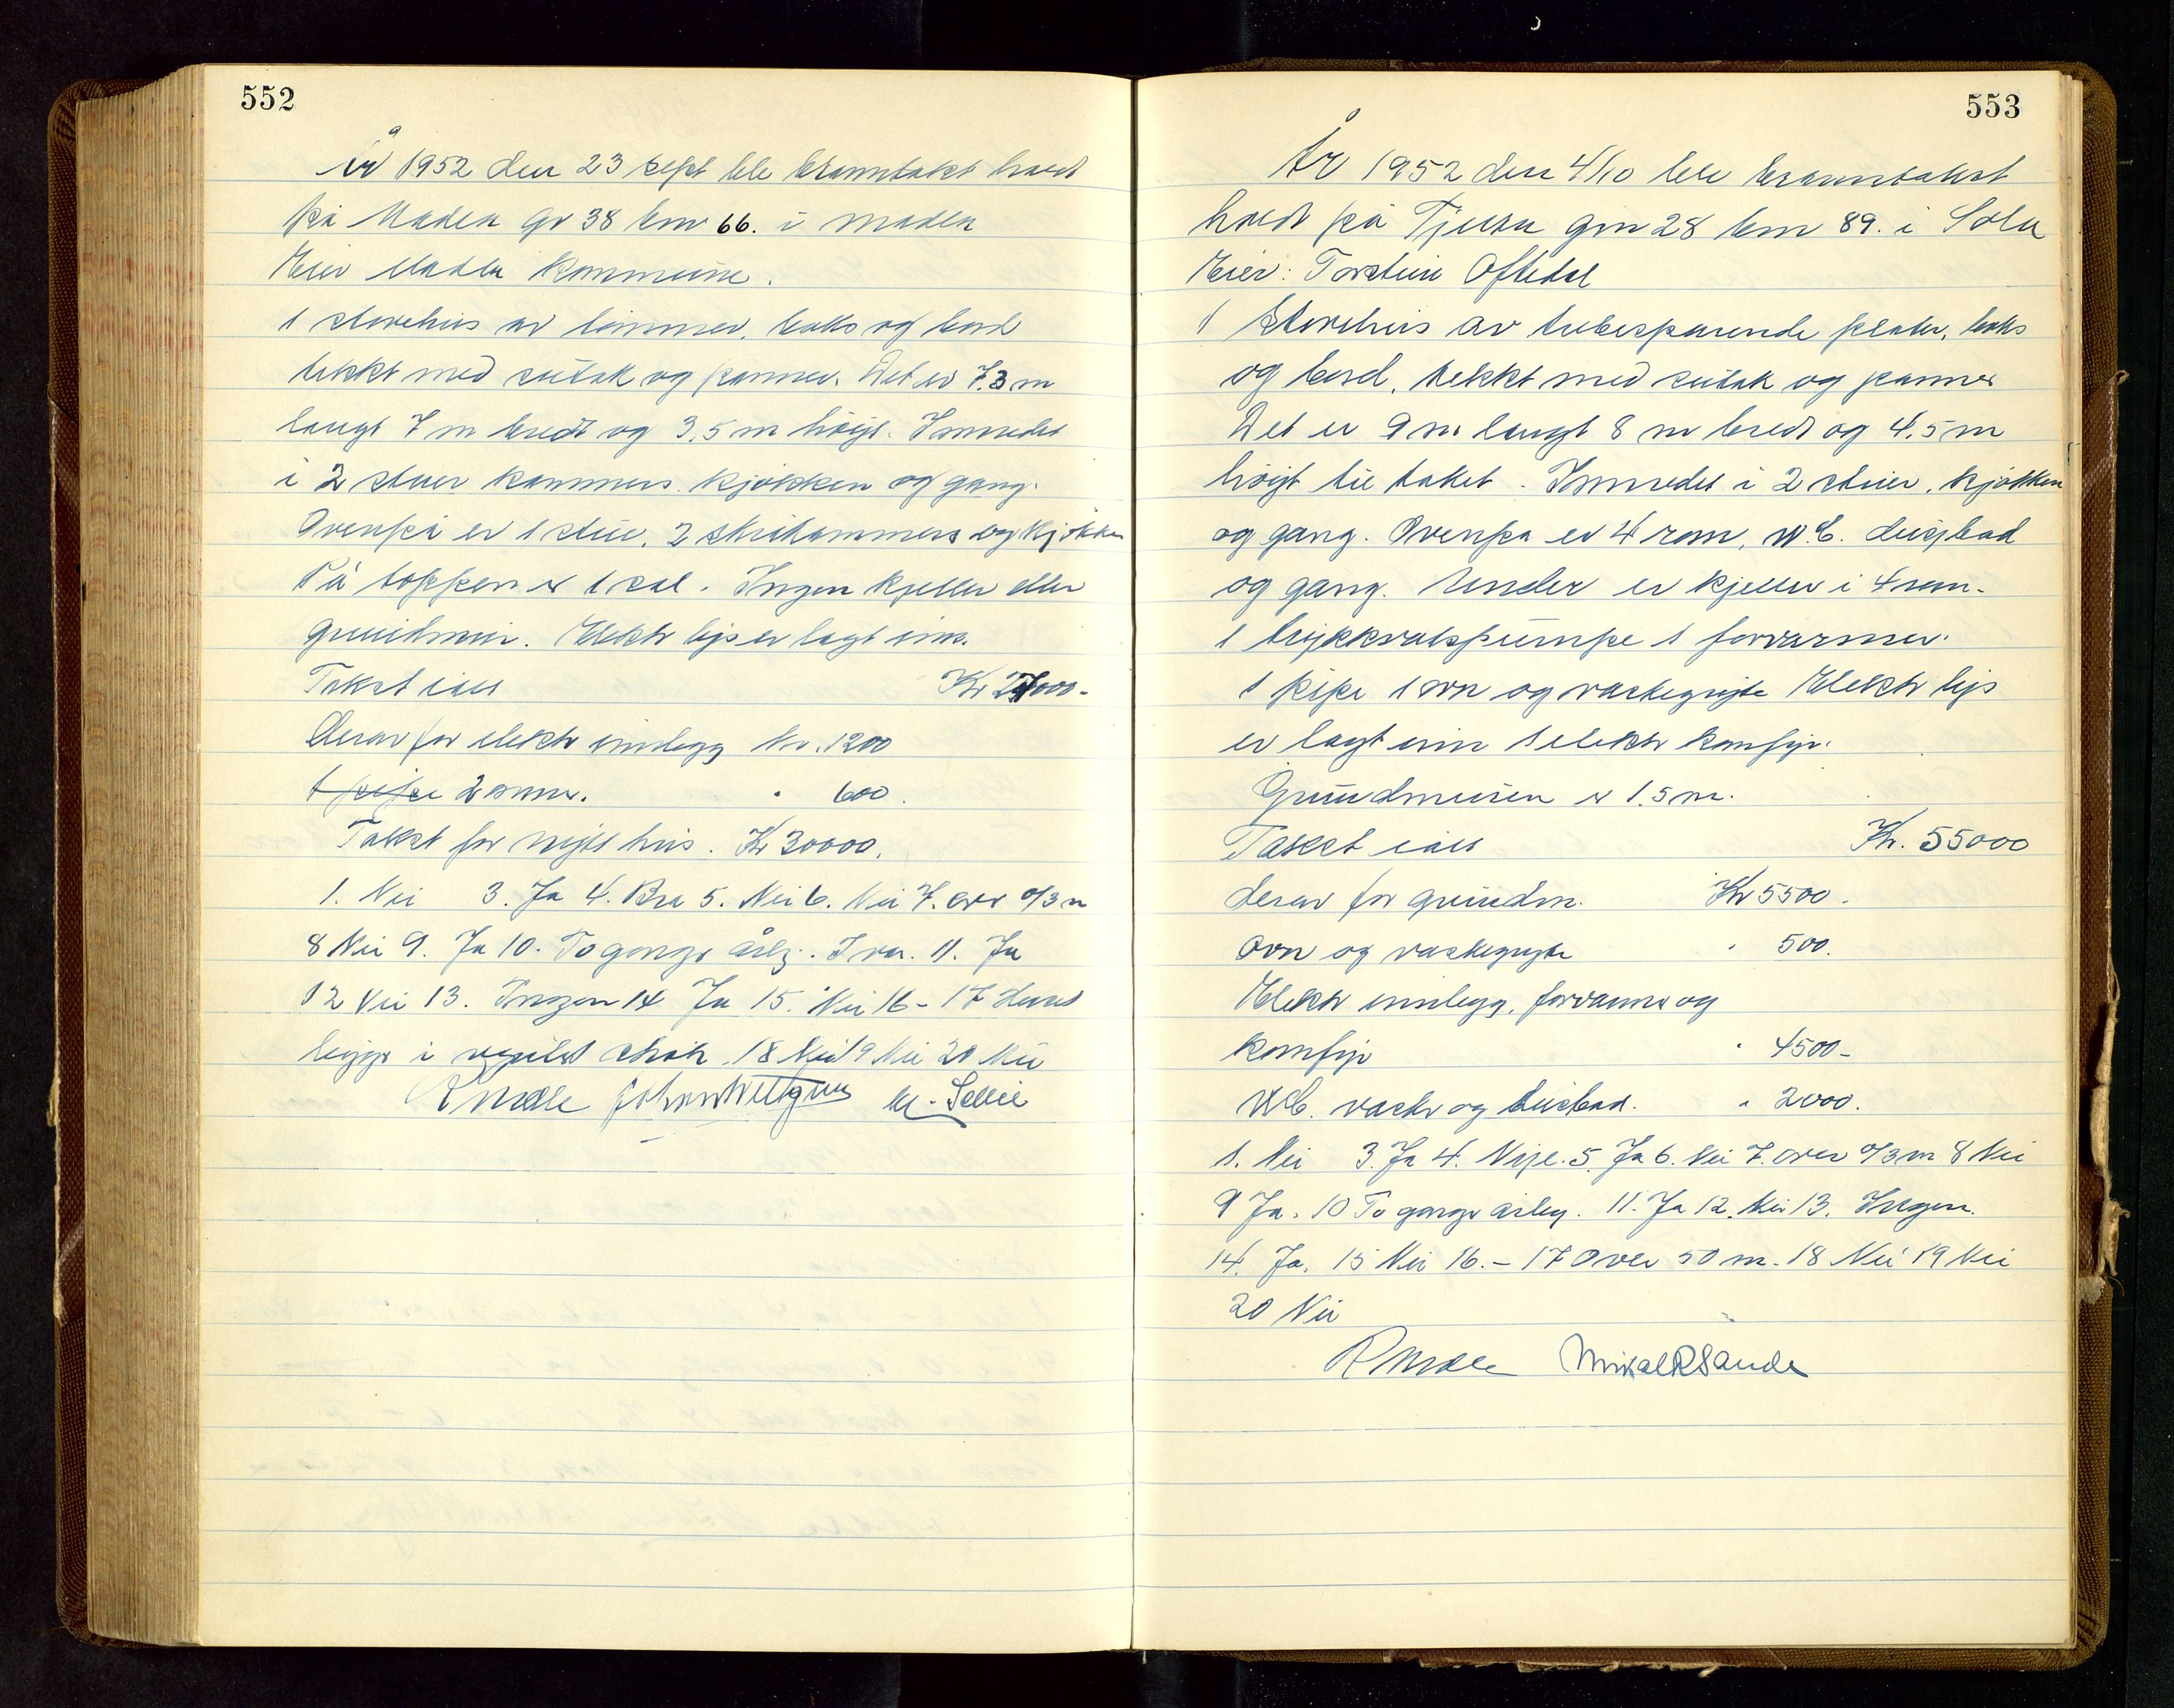 552
År 1952 den 23 sept ble branntakst holdt
på Madla gr 38 bnr 66. i Madla
Eier Madla kommune.
1 storehus av tømmer, boks og bord
tekkt med sutak og panner. Det er 7.3 m
langt 7 m bredt og 3,5 m høigt. Innredet
i 2 stuer kammers. kjøkken og gang.
Ovenpå er 1 stue, 2 skråkammers og kjøkken
På toppen er 1 sal. Ingen kjeller eller
grundmur. Elektr lys er lagt inn.
Takst ialt Kr 27000.
Derav for elektr innlegg kr. 1200
1 pipe 2 ovner. " 600.
Takst for nytt hus. Kr 30000.
1. Nei 3. Ja 4. Bra 5. Nei 6. Nei 7. over 0/3 m
8 Nei 9. Ja 10. To gange årlig. I var. 11. Ja
12 Nei 13. Ingen 14 Ja 15. Nei 16 - 17 Huset
ligger i regulert strøk. 18 Nei 19 Nei 20 Nei
R Madle
553
År 1952 den 4/10 ble branntakst
holdt på Tjelta gnr 28 bnr 89. i Sola
Eier: Torstein Oftedal
1 Storehus av trebesparende plater, boks
og bord, tekkt med sutak og panner
Det er 9 m langt 8 m bredt og 4.5 m
høigt til taket. Innredet i 2 stuer, kjøkken
og gang. Ovenpa er 4 rom, W.C. dusjbad
og gang. Under er kjeller i 4 rom.
1 trykkvatspumpe 1 forvarmer.
1 pipe 1 ovn og vaskegryte Elektr lys
er lagt inn 1 elektr komfyr.
Grundmuren er 1.5 m.
Takst ialt Kr. 55000
derav for grundm. Kr 5500.
Ovn og vaskegryte " 500.
Elektr innlegg, forvarmer og
komfyr " 4500-
WC. vask og dusbad. " 2000.
1. Nei 3. Ja 4. Nye. 5. Ja 6. Nei 7. over 0/3 m 8 Nei
9 Ja. 10 To gange årleg. 11. Ja 12. Nei 13. Ingen.
14. Ja. 15 Nei 16. - 17 Over 50 m. 18 Nei 19 Nei
20 Nei
R Madle Mikal R Sande